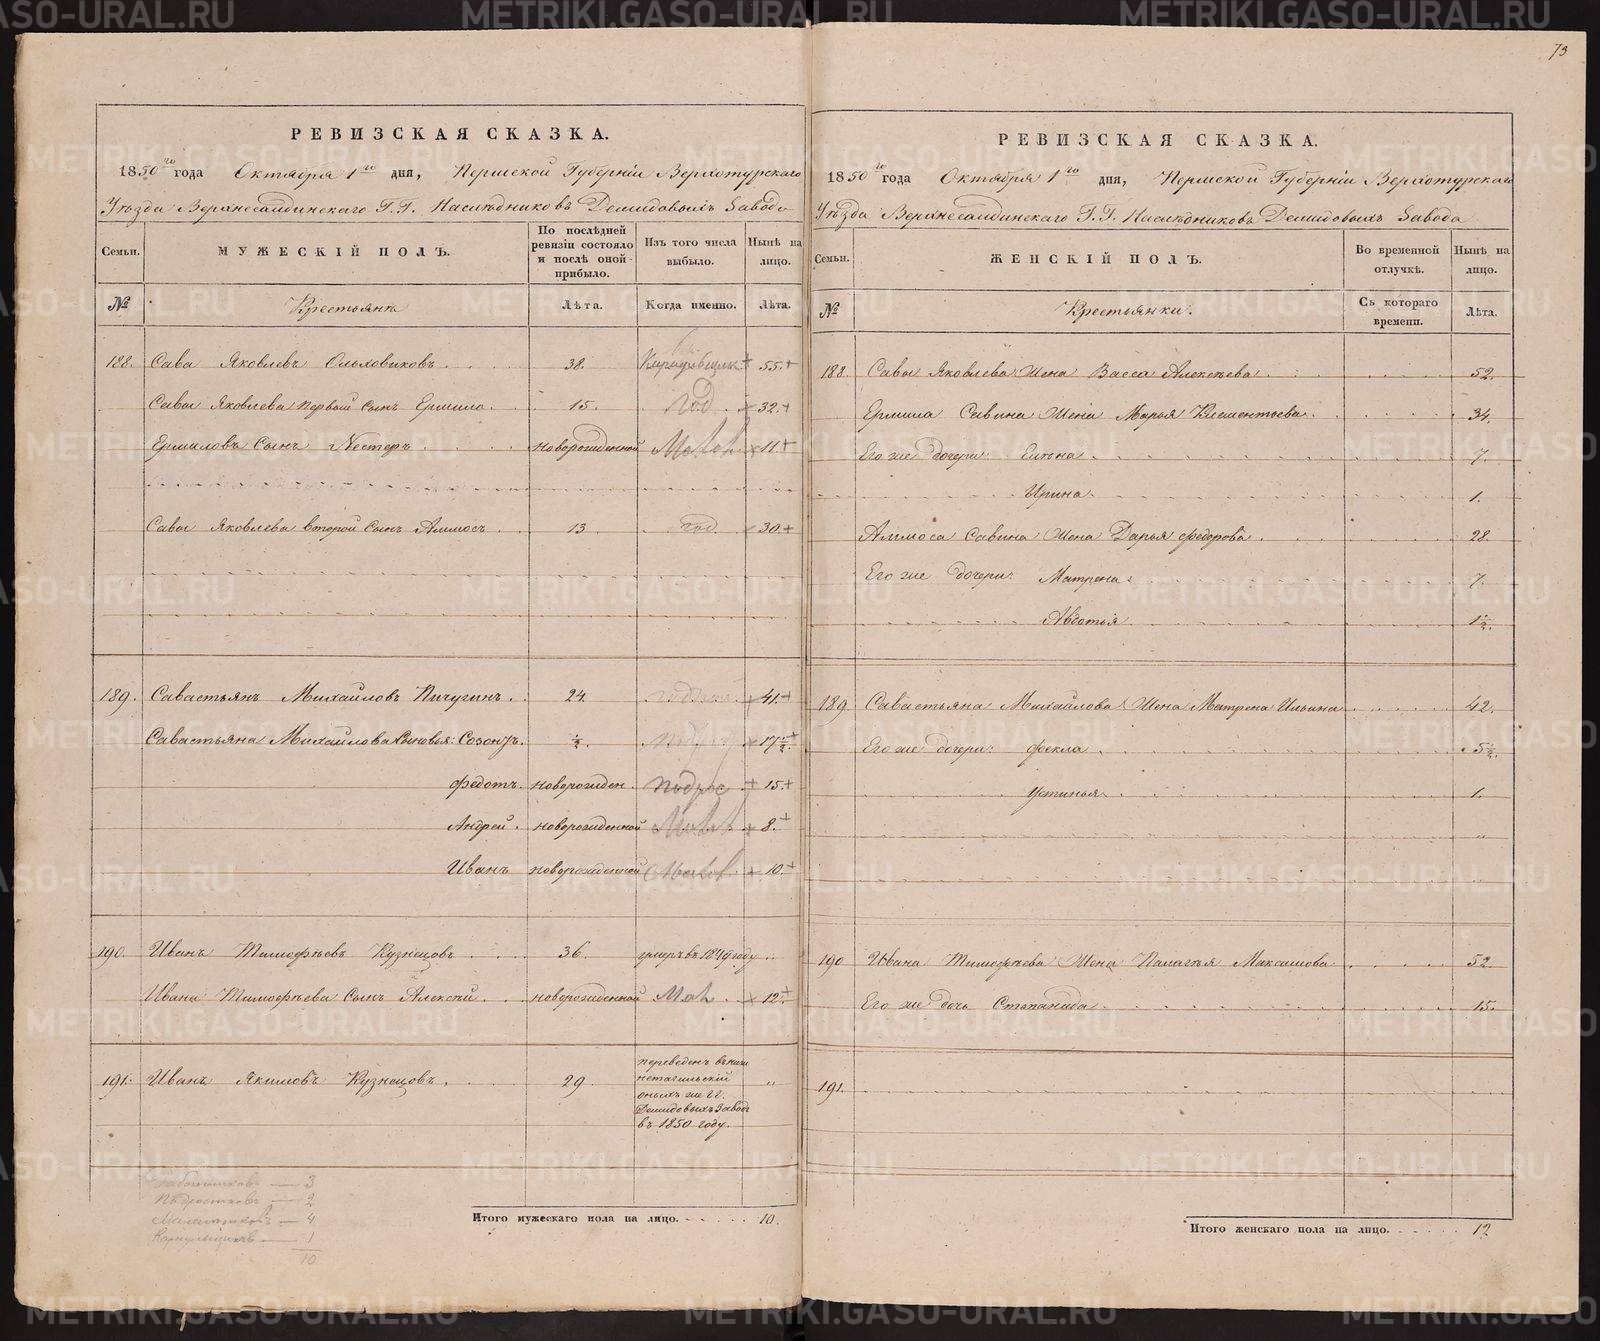 73
РЕВИЗСКАЯ СКАЗКА.
1850го года Октября 1го дня, Пермской Губерніи Верхотурскаго
Уѣзда Верхнесалдинскаго Г.Г. Наслѣдниковъ Демидовыхъ Завода
Семьи. МУЖЕСКІЙ ПОЛЪ. По послѣдней ревизіи состояло и послѣ оной прибыло. Изъ того числа выбыло. Нынѣ на лицо.
№ Крестьянъ Лѣта. Когда именно. Лѣта.
188. Сава Яковлевъ Ольховиковъ 38. 55.
Савы Яковлева первый сынъ Ермило 15. год 32.
Ермиловъ Сынъ Нестеръ новорожденной Малол 11
Савы Яковлева второй Сынъ Аммосъ 13 год 30.
189. Савастьянъ Михайловъ Пичугинъ 24. 41.
Савастьяна Михайлова Сыновья: Созонтъ. ½. 17½
Федотъ. новорожден. подрос 15.
Андрей. новорожденной Малол 8.
Иванъ новорожденной Малол 10.
190. Иванъ Тимофѣевъ Кузнецовъ 36. умеръ въ 1849 году „
Ивана Тимофѣева Сынъ Алексѣй новорожденной Мал 12.
191. Иванъ Якимовъ Кузнецовъ. 29. переведенъ въ нижнетагильскій оныхъ же Г.Г. Демидовыхъ Заводъ въ 1850 году. „
3
Подростковъ — 2
Малолѣтковъ — 4
1
10
Итого мужескаго пола на лицо. 10.
РЕВИЗСКАЯ СКАЗКА.
1850го года Октября 1го дня, Пермской Губерніи Верхотурскаго
Уѣзда Верхнесалдинскаго Г.Г. Наслѣдниковъ Демидовыхъ Завода
Семьи. ЖЕНСКІЙ ПОЛЪ. Во временной отлучкѣ. Нынѣ на лицо.
№ Крестьянки. Съ котораго времени. Лѣта.
188. Савы Яковлева Жена Васса Алексѣева 52.
Ермила Савина Жена Марья Клементьева 34.
Его же дочери: Елена 7.
Ирина 1.
Аммоса Савина Жена Дарья Федорова 28.
Его же дочери: Матрена 7.
Авдотья 1½.
189. Савастьяна Михайлова Жена Матрена Ильина 42.
Его же дочери: Фекла 5½.
Устинья 1.
190 Ивана Тимофѣева Жена Палагѣя Максимова 52.
Его же дочь Степанида 15.
191.
Итого женскаго пола на лицо. 12
METRIKI.GASO-URAL.RU